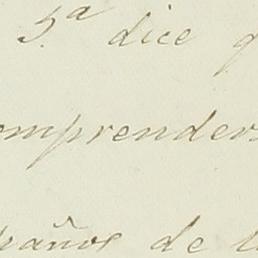 5.ª dice q
omprender
paños de l